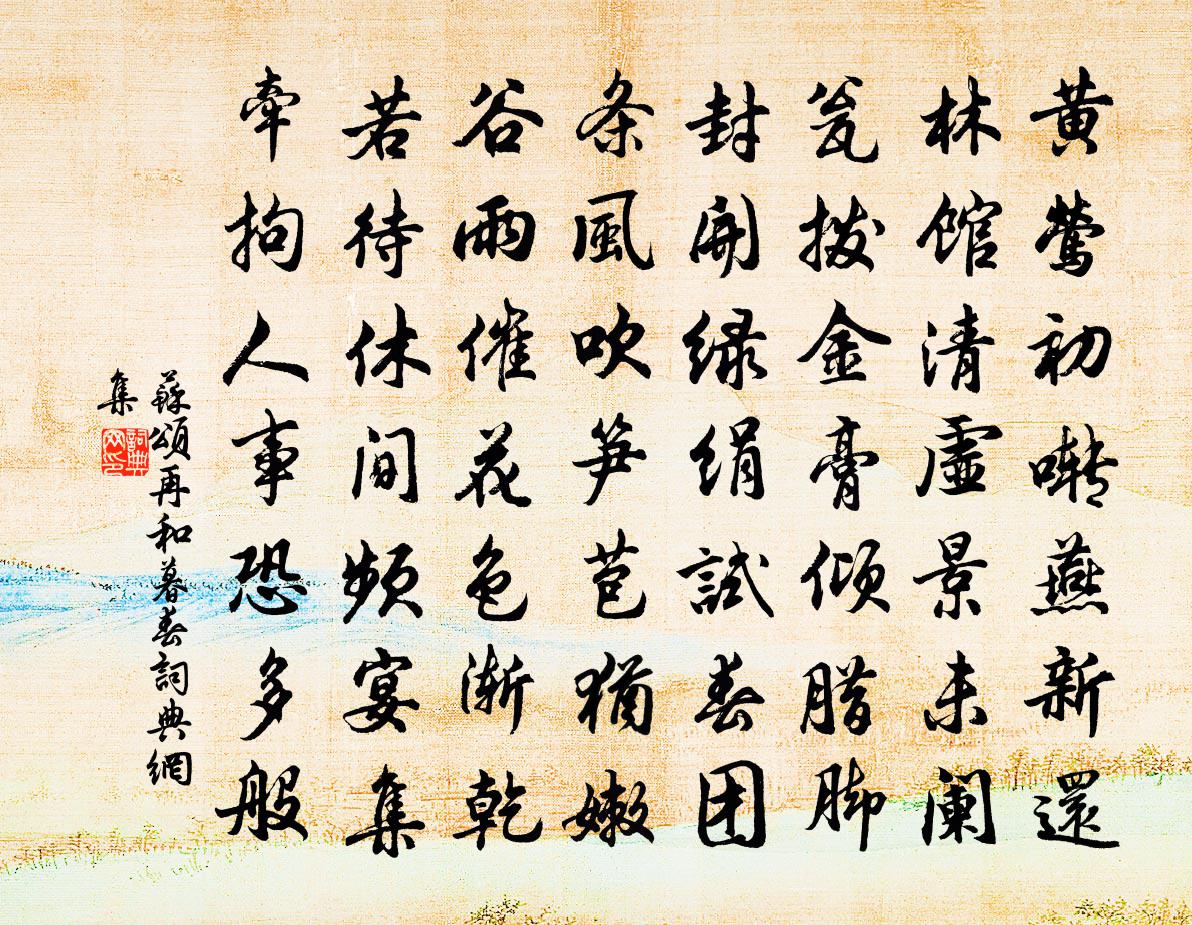 黄鶯初囀燕新還
林館清虛景未阑
瓮拨金膏倾腊脚
封開绿絹試春团
条風吹笋苞猶嫩
谷雨催花色渐乾
若待休閒频宴集
牽拘人事恐多般
蘇頌再和暮春詞典網
集
詞典網印